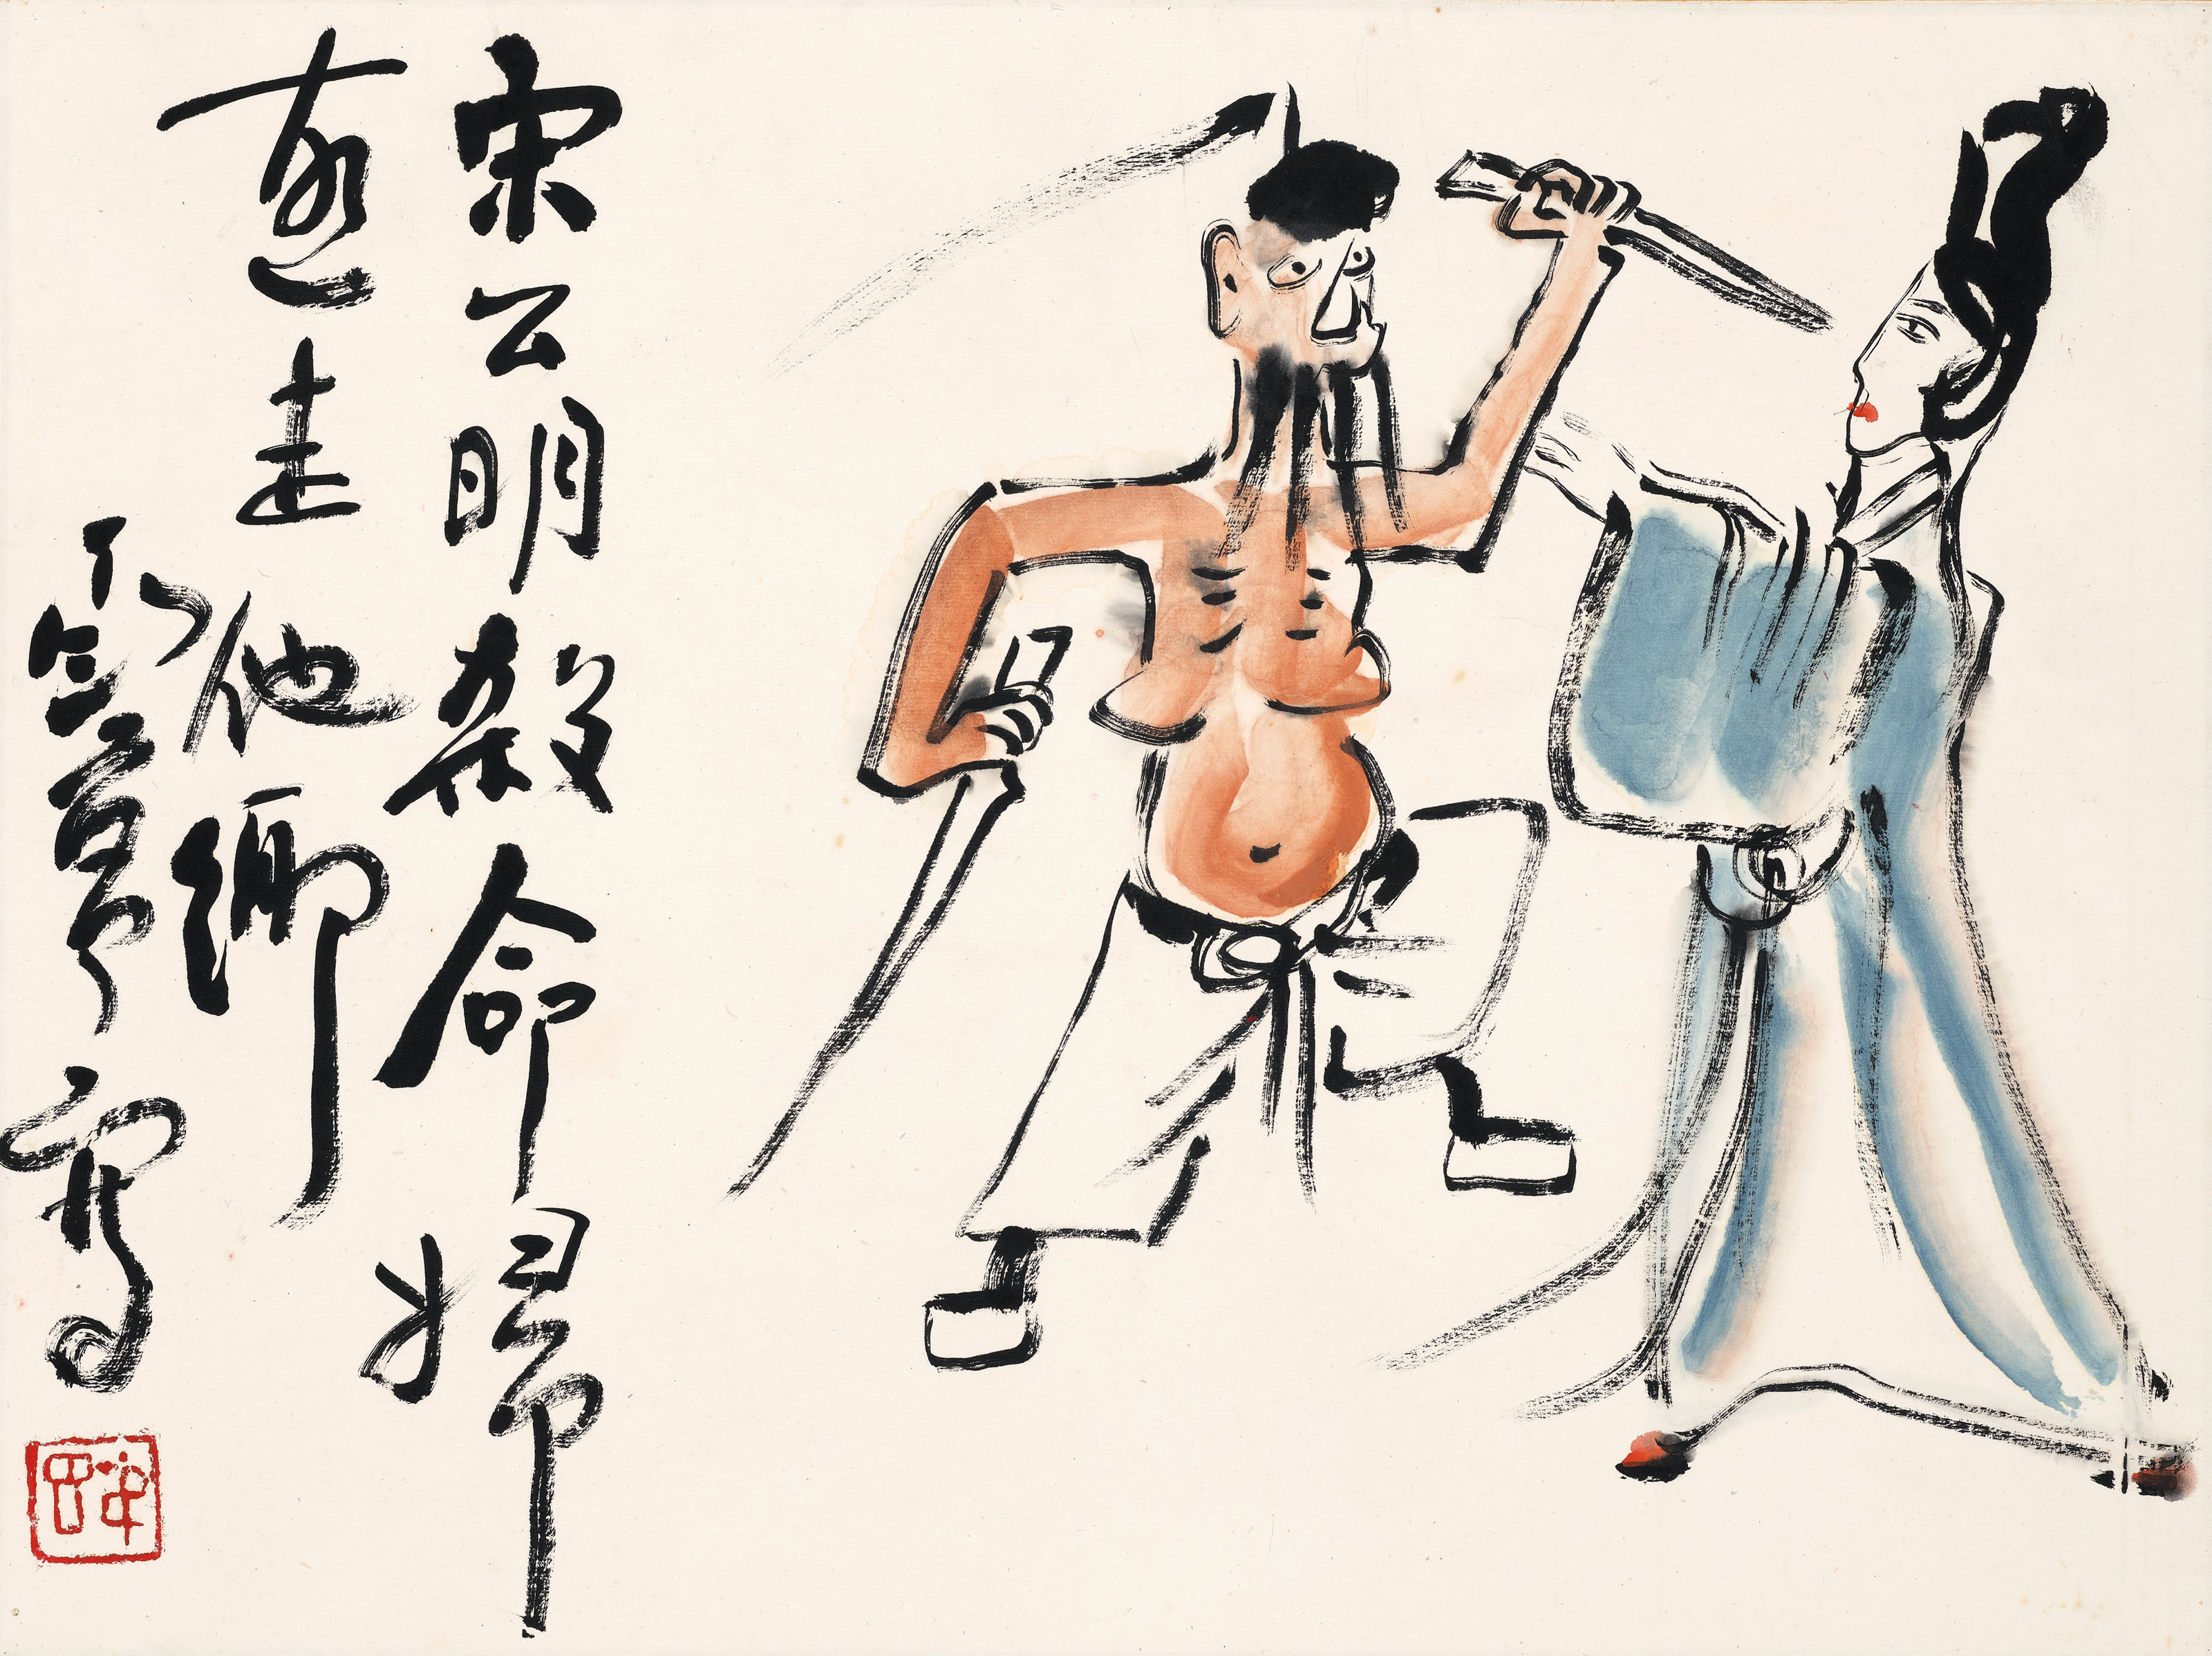 宋公明殺命婦
遠走他鄉
丁衍庸寫